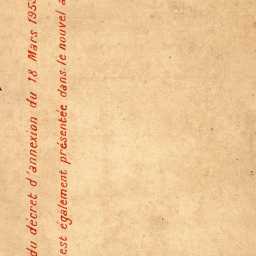 du décret d'annexion du 18 Mars 195
est également présentée dans le nouvel